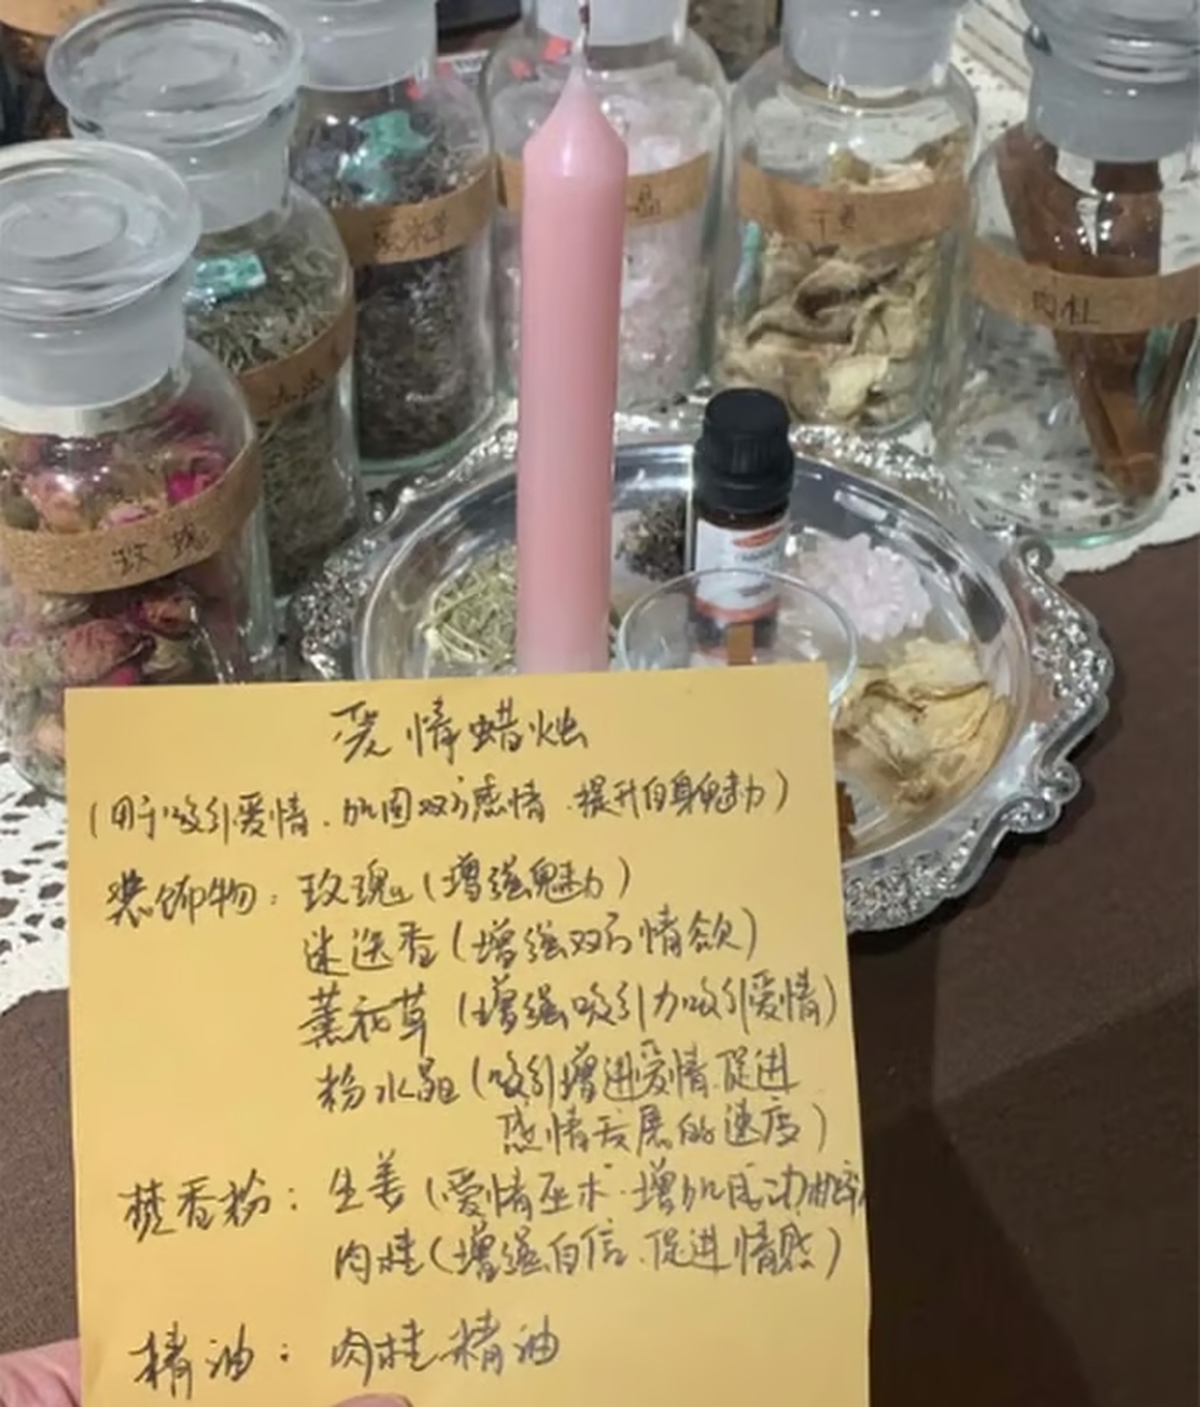 薰衣草
晶
干姜
肉桂
迷迭
玫瑰
爱情蜡烛
(用于吸引爱情.加固双方感情.提升自身魅力)
装饰物:玫瑰(增强魅力)
迷迭香(增强双方情欲)
薰衣草(增强吸引力吸引爱情)
粉水晶(吸引增进爱情.促进
感情发展的速度)
焚香粉:生姜(爱情巫术.增加成功概率)
肉桂(增强自信.促进情感)
精油:肉桂精油